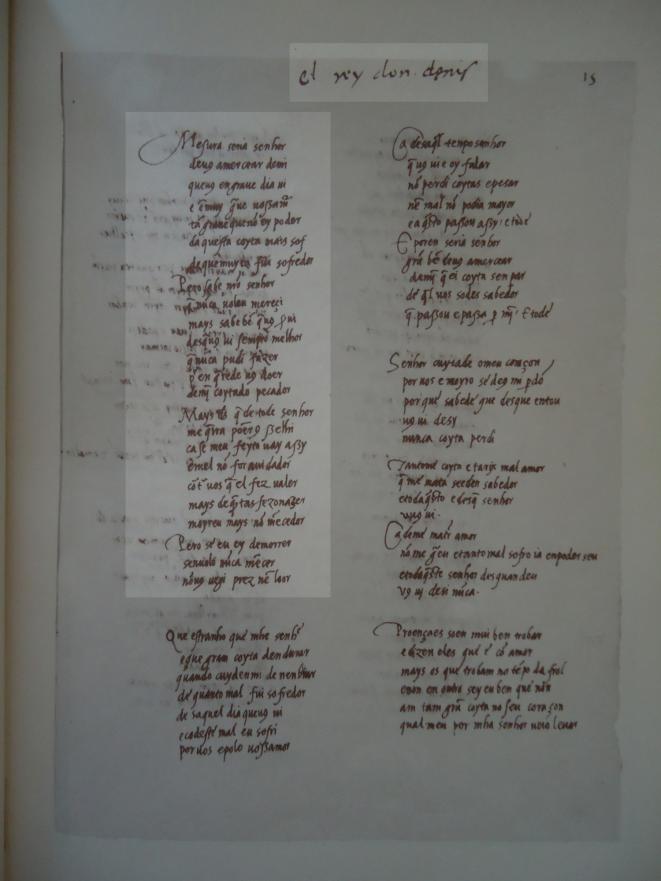 el rey don denis
15
Mesura seria senhor
deuos amerçear demi
queuos engraue dia ui
e muy graue uossam̃
tã graue quenõ ey poder
daquesta coyta mais sof
de que muyto fui sofredor
Pero sabe nr̃o senhor
q̃ nũca uoleu mereçi
mays sabe bẽ q̃ uos ui
desq̃uos ui sempr̃o melhor
q̃ nũca pudi fazer
por en q̃rede uos doer
demĩ coytado pecador
Mays d’s q̃ de tode senhor
me q̃ira põer
ca se meu feyto uay assy
emel nõ for aiudador
cõt’ uos q̃ el fez ualer
mays de q̃ntas fezo naçer
moyreu mays nõ mereçedor
Pero se eu ey demorrer
senuolo nũca mereçer
nõ uos ueiy prez nẽ loor
Que estranho que mhe senhor
e que gran coyta dendurar
quando cuyden mi de nenbrar
de quanto mal fui sofredor
de saquel dia que uos ui
e todeste mal eu sofri
por uos e polo uossamor
Ca desaq̃l tempo senhor
q̃ uos uie oy falar
nõ perdi coytas e pesar
nẽ mal nõ podia mayor
e aq̃sto passou assy e tode
E poren seria senhor
grã bẽ deuos amerçear
demĩ q̃ ei coyta sen par
de q̃l uos sodes sabedor
q̃ passou e passa p mĩ e tode
Senhor cuytade o meu coraçon
por uos e moyro se deos mi pdõ
porque sabede que desque entou
uos ui desy
nunca coyta perdi
Tantome coyta e traix mal amor
q̃ me mata seede sabedor
e todaq̃sto e desq̃ senhor
uos ui
Ca deme matr̃ amor
nõ me g̃eu e tanto mal sofro ia en poder seu
e todaq̃ste senhor des quandeu
uos ui desi nũca
Proençaes soen mui ben trobar
e dizen eles que é cõ amor
mays os que trobam no tẽpo da frol
e non en outro sey eu ben que nõn
am tam grã coyta no seu coraçon
qual meu por mha senhor ueio leuar